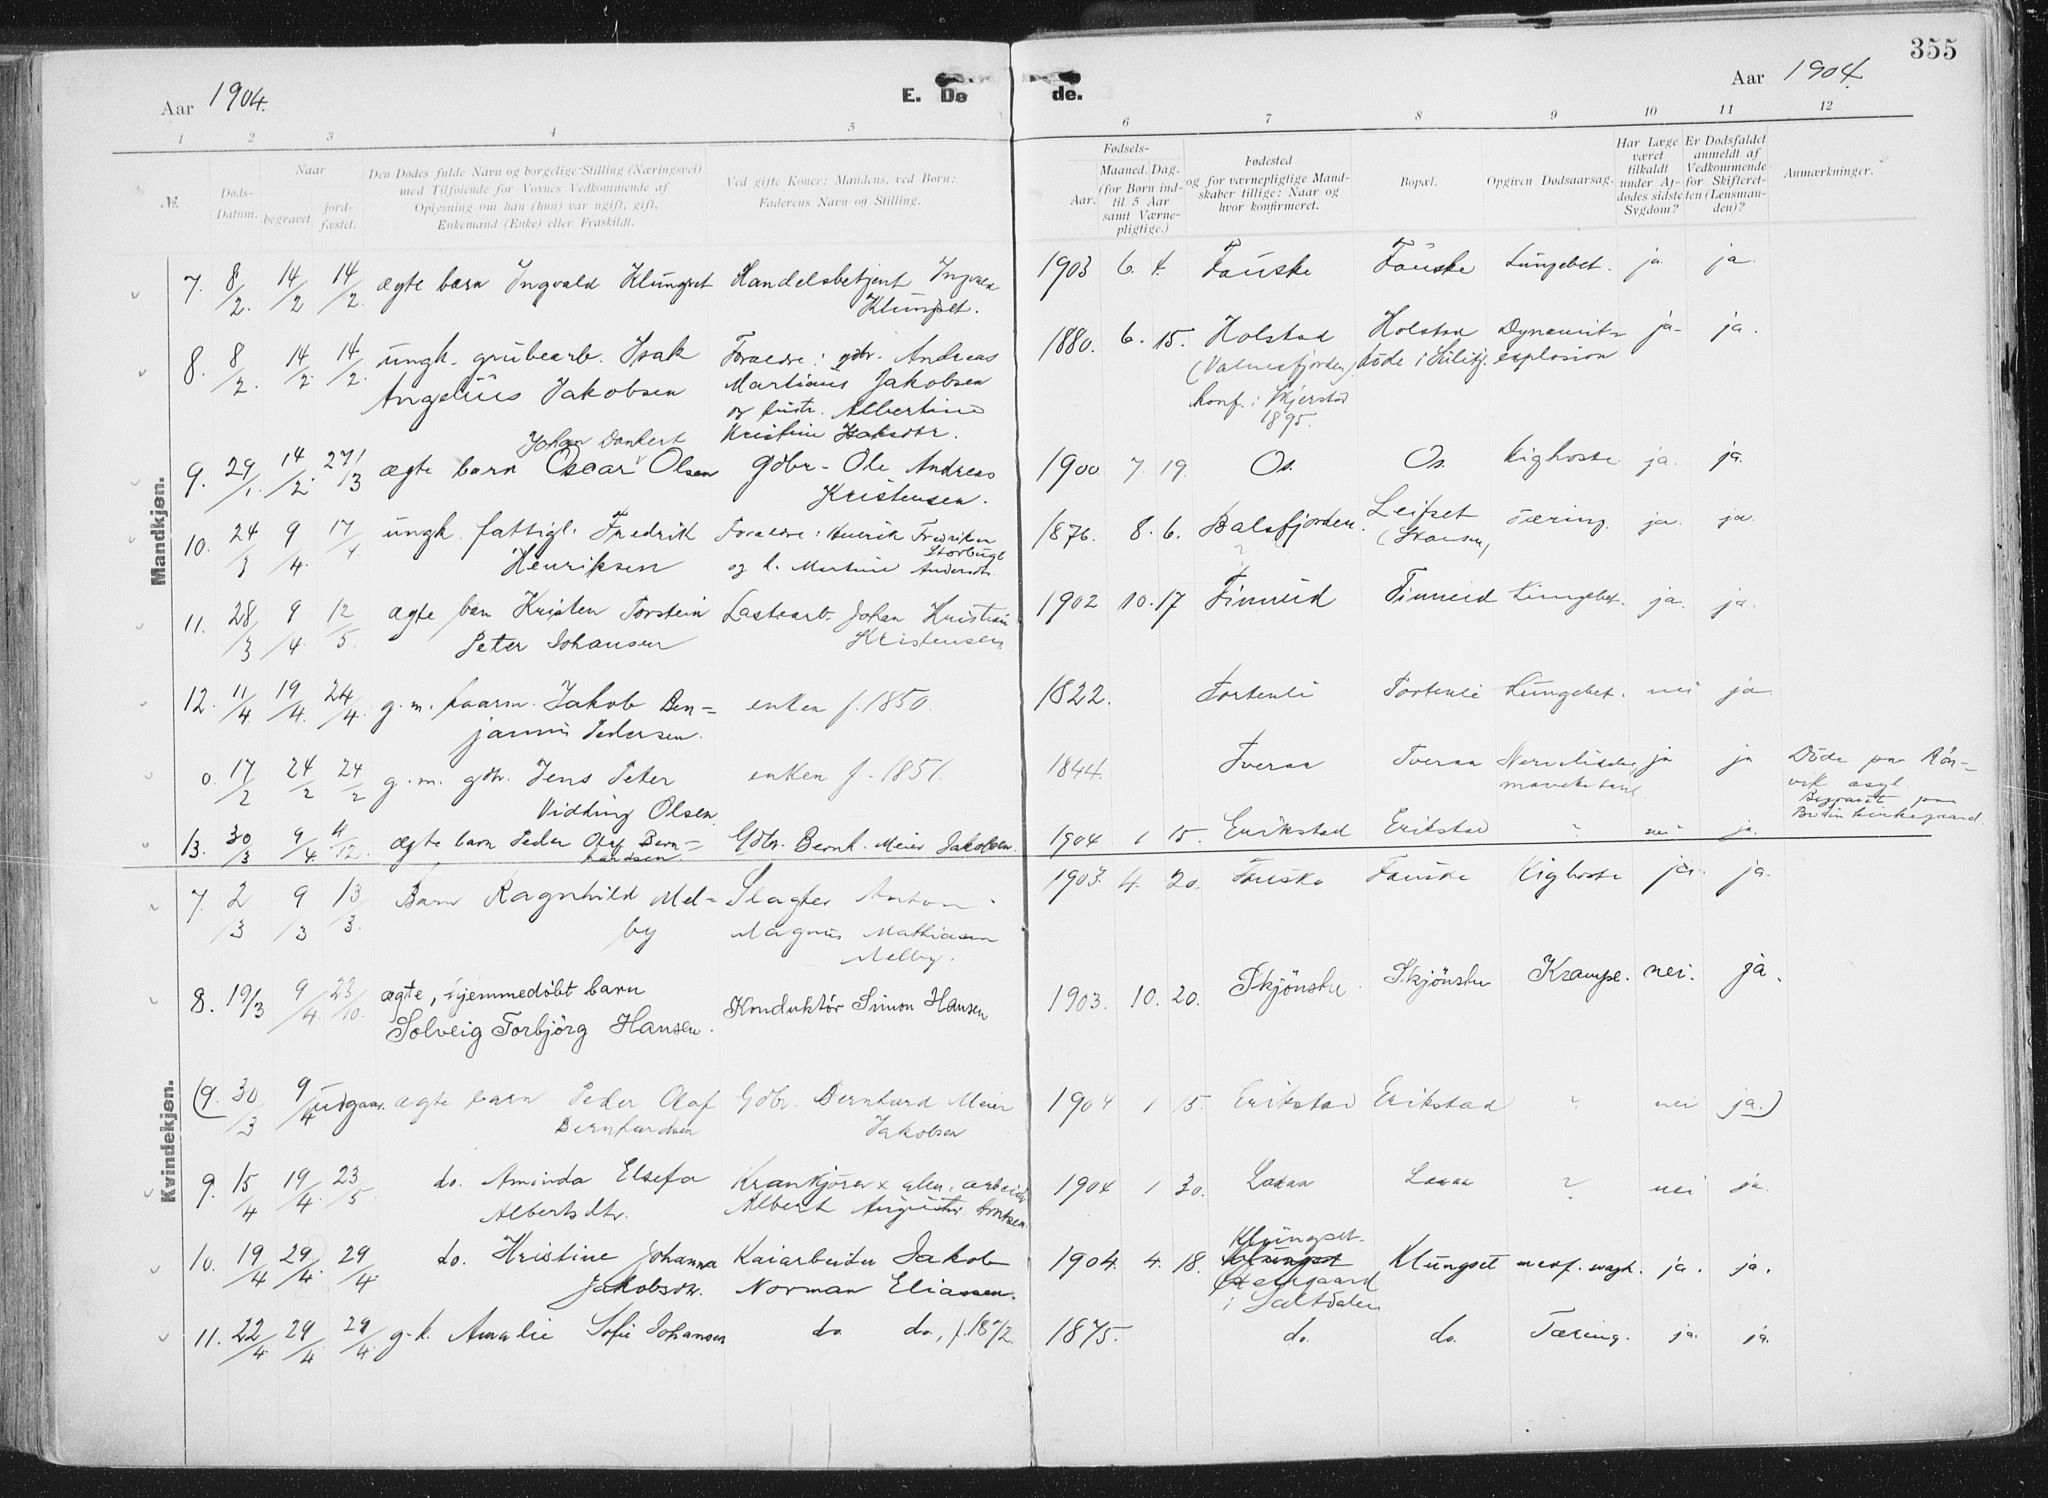 355
Aar 1904.
E. Døde.
Aar 1904.
1 2 3 4 5 6 7 8 9 10 11 12
№.
Døds-Datum.
Naar
begravet
jordfæstet.
Den Dødes fulde Navn og borgelige Stilling (Næringsvei)
med Tilføiende for Voxnes Vedkommende af
Oplysning om han (hun) var ugift, gift,
Enkemand (Enke) eller Fraskildt.
Ved gifte Koner: Mandens, ved Børn:
Faderens Navn og Stilling.
Fødsels-
Aar.
Maaned. Dag.
(for Børn ind-
til 5 Aar
samt Værne-
pligtige.)
Fødested
og for værnepligtige Mand-
skaber tillige: Naar og
hvor konfirmeret.
Bopæl.
Opgiven Dødsaarsag.
Har Læge
været
tilkaldt
under Af-
dødes sidste
Sygdom?
Er Dødsfaldet
anmeldt af
Vedkommende
for Skifteret-
ten (Lensman-
den)?
Anmærkninger.
Mandkjøn.
7. 8/2. 14/2 14/2. ægte barn Ingvald Klungset Handelsbetjent Ingvald 1903 6. 4. Fauske Fauske Lungebet. ja ja.
Klungset.
8. 8/2. 14/2. 14/2. ungk. grubearb. Isak Foraldre: gdbr. Andreas 1880. 6. 15. Holstad Holstad Dynamit= ja- ja.
Angelius Jakobsen Martinus Jakobsen (Valnesfjorden) døde i Sulitj. explosion
og hustr. Albertine konf. i Skjerstad
Kristine Isaksdtr. 1895.
Johan Dankert
9. 29/1. 14/2. 27/3 ægte barn Oscar Olsen Gdbr. Ole Andreas 1900. 7. 19. Os. Os. Kighoste ja. ja.
Kristensen.
10. 24/3 9/4. 17/4 ungk. fattigl. Fredrik Foraldre: Henrik Fredriksen 1876. 8. 6. Balsfjorden. Leifset Tæring. ja. ja.
Henriksen og h. Martine Andersdtr. ?
11. 28/3 9/4. 12/5. ægte barn Kristen Torstein Lastearb. Johan Kristian 1902 10. 17 Finneid Finneid Lungebet. ja. ja.
Peter Johansen Kristensen
12. 11/4. 19/4. 24/4. g. m. Jakob Ben= enken f. 1850. 1822. Tortenli Tortenli Lungebet. nei ja
jamin Pedersen.
0. 17/2 24/2 24/2 g. m. gdbr. Jens Peter enken f. 1851. 1844. Tveraa Tveraa ja ja Døde paa Røn-
Vidding Olsen. vik asyl.
Begravet paa
Bodin kirkegaard.
13. 30/3 9/4 4/12. ægte barn Peder Olaf Bern= Gdbr. Bernh. Meier Jakobsen. 1904 1 15. Erikstad Erikstad ? nei ja.
hardsen
Kvindekjøn.
7. 2/3 9/3 13/3. Barn Ragnhild Mel= Slagter Anton 1903. 4. 20. Fauske Fauske Kighoste ja. ja.
by Magnus Mathiasen
Melby.
8. 19/3 9/4 23/10. ægte, hjemmedøbt barn Konduktør Simon Hansen 1903. 10. 20. Skjønstu. Skjønstu Krampe. nei. ja.
Solveig Torbjörg Hansen.
(9. 30/3 9/4 udgaar. ægte barn Peder Olaf Gdbr. Bernhard Meier 1904 1 15. Erikstad Erikstad ? nei ja.)
Bernhardsen Jakobsen
9. 15/4 19/4. 23/5. do. Aminda Elsefa Krankjörer x alm. arbeider 1904 1 30. Laxaa Laxaa ? nei ja.
Albertsdtr. Albert August Arntsen
10. 19/4 29/4. 29/4. do. Kristine Johanna Kaiarbeider Jakob 1904. 4. 18. Klungset- Klungset ja. ja.
Jakobsdtr. Norman Eliassen. Steengaard
i Saltdalen
11. 22/4. 29/4. 29/4. g. k. Amalie Sofie Johansen do do., f. 1872. 1875. do. do. Tæring. ja. ja.